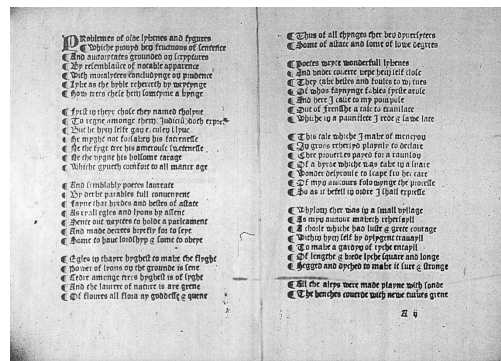 PRoblemes of olde lykenes and fygures
Whiche prouyd ben fructuous of sentence
And auctorytates grounded on scryptures
By resemblaūce of notable apparence
With moralytees concludynge on prudence
Lyke as the byble reherceth by wrytynge
How trees chese hem somtyme a kynge
Fyrst in theyr chose they named the olyue
To regne amonge them Judiciū doth
But he hym selfe gan excuse blyue
He myght not forsake his fatnesse
Ne the fygt tree his amerouse swetenesse
Ne the vygne his holsome tarage
Whiche gyueth comfort to all maner age
And semblably poetes laureate
By derke parables full conuenyent
Fayne that byrdes and bestes of astate
As ryall egles and lyons by assent
Sente out wryttes to holde a parleament
And made decrees breyfly for to seye
Some to haue lordshyp & some to obeye
Egles in thayre hyghest to make the flyght
Power of lyons on the grounde is sene
Cedre amonge trees hyghest is of syght
And the laurer of nature is aye grene
Of floures all flora ny goddesse & quene
Thus of all thynges ther ben dyuersytees
Some of astate and some of lowe degrees
Poetes wryte wonderfull lykenes
And vnder couerte kepe hem self close
They take bestes and foules to wytnes
Of whos faynynge fables fyrste arose
And here I caste to my purpose
Out of Frensshe a tale to translate
Whiche in a paunflett I rede & sawe late
This tale whiche I make of mencyou
In gross rehersyd playnly to declare
Thre prouerbes payed for a raunsou
Of a byrde whiche was take in a snare
Wonder desyrouse to scape fro her care
Of myn auctours folowynge the processe
So as it befell in ordre I shall expresse
Whylom ther was in a small vyllage
As myn auctour maketh rehersayll
A chorle whiche had luste & grete courage
Within hym self by dylygent trauayll
To make a gardyn of ryche entayll
Of lengthe & brede lyche square and longe
Hegged and dyched to make it sure & stronge
All the aleys were made playne with sonde
The benches couerde with newe turues grene
A ij